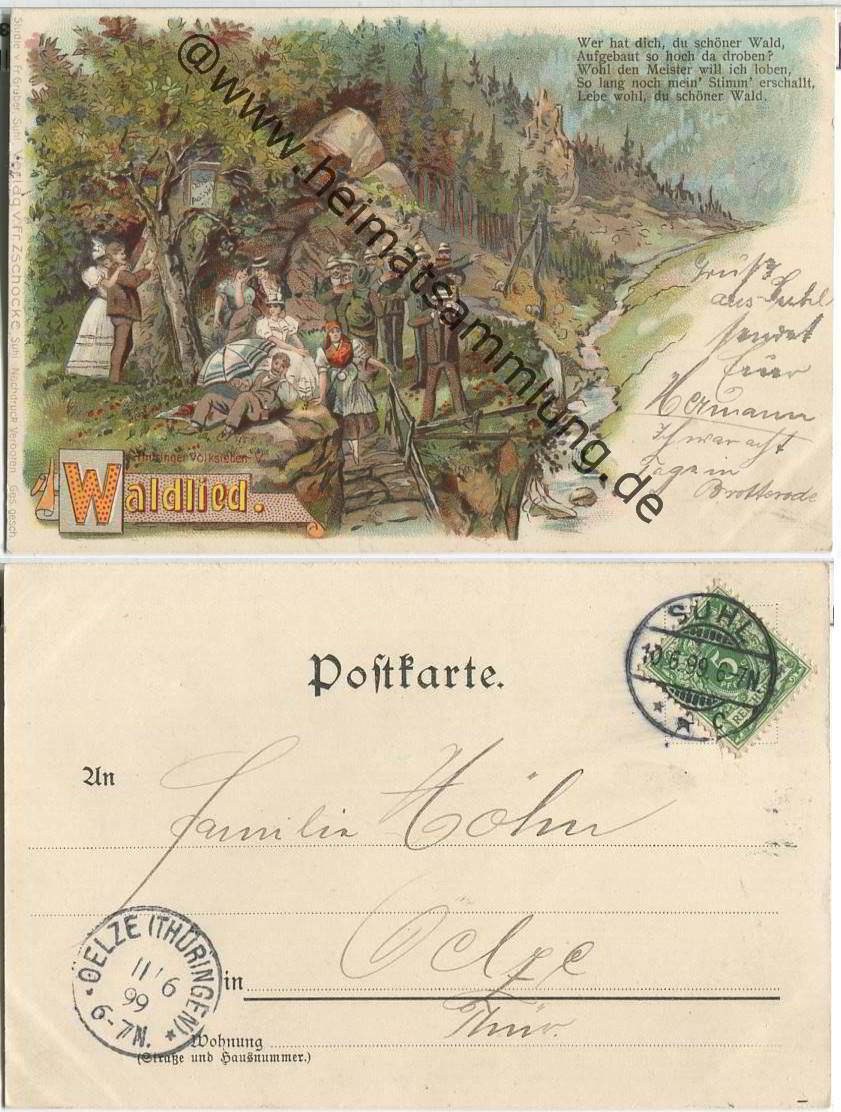 Wer hat dich, du schöner Wald,
Aufgebaut so hoch da droben?
Wohl den Meister will ich loben,
So lang noch mein' Stimm' erschallt,
Lebe wohl, du schöner Wald.
@www.heimatsammlung.de
Studie v. Fr. Gruber Suhl Verlag v. Fr. Zschocke Suhl Nachdruck verboten Ges. gesch.
Gruß
aus Suhl
sendet
Euer
Hermann
Ich war acht
Tage in
Brotterode
Thüringer Volksleben
Waldlied.
Postkarte.
SUHL
10.6.99.6-7N.
* * c
5
REICHS
An
Familie Höhn
Oelze
in
Thür.
OELZE (THÜRINGEN)
11/6
99
6-7N.
Wohnung
(Straße und Hausnummer.)